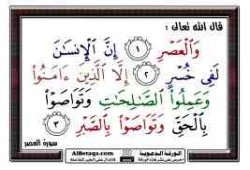 قال الله تعالى :
وَالْعَصْرِ ١ إِنَّ الْإِنْسَٰنَ
لَفِى خُسْرٍ ٢ إِلَّا الَّذِينَ ءَامَنُوا۟
وَعَمِلُوا۟ الصَّٰلِحَٰتِ وَتَوَاصَوْا۟
بِالْحَقِّ وَتَوَاصَوْا۟ بِالصَّبْرِ ٣
سورة العصر
AlBetaqa.com